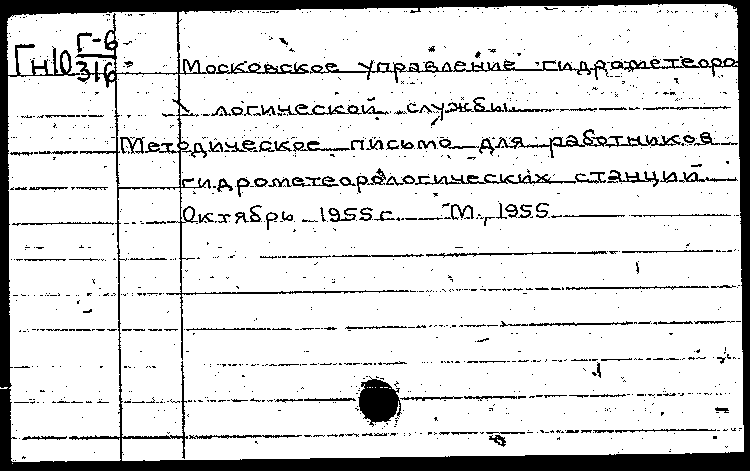 Гн10 Г-6/316
Московское управление гидрометеоро
логической службы.
Методическое письмо для работников
гидрометеорологических станций.
Октябрь 1955 г. М., 1955